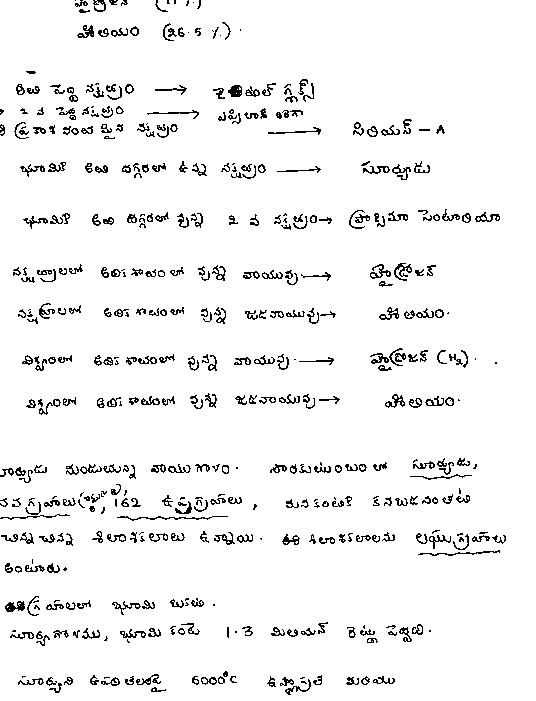 హైడ్రోజన్ (71 %)
హీలియం (26.5 %).
అతి పెద్ద నక్షత్రం →
2 వ పెద్ద నక్షత్రం →
ప్రకాశవంతమైన నక్షత్రం → సిరియస్ - A
భూమికి అతి దగ్గరలో ఉన్న నక్షత్రం → సూర్యుడు
భూమికి అతి దగ్గరలో వున్న 2 వ నక్షత్రం → ప్రాక్సిమా సెంటారియా
నక్షత్రాలలో అధిక శాతంలో వున్న వాయువు → హైడ్రోజన్
నక్షత్రాలలో అధిక శాతంలో వున్న జడవాయువు → హీలియం.
విశ్వంలో అధిక శాతంలో వున్న వాయువు. → హైడ్రోజన్ (H₂).
విశ్వంలో అధిక శాతంలో వున్న జడవాయువు → హీలియం.
సూర్యుడు మండుచున్న వాయుగోళం. సౌరకుటుంబం లో సూర్యుడు,
నవగ్రహాలు, 162 ఉపగ్రహాలు, మన కంటికి కనబడనంతటి
చిన్న చిన్న శిలాశకలాలు ఉన్నాయి. ఈ శిలాశకలాలను లఘుగ్రహాలు
అంటారు.
గ్రహాలలో భూమి ఒకటి.
సూర్యగోళము, భూమి కంటే 1.3 మిలియన్ రెట్లు పెద్దది.
సూర్యుని ఉపరితలంపై 6000°C ఉష్ణోగ్రత మరియు